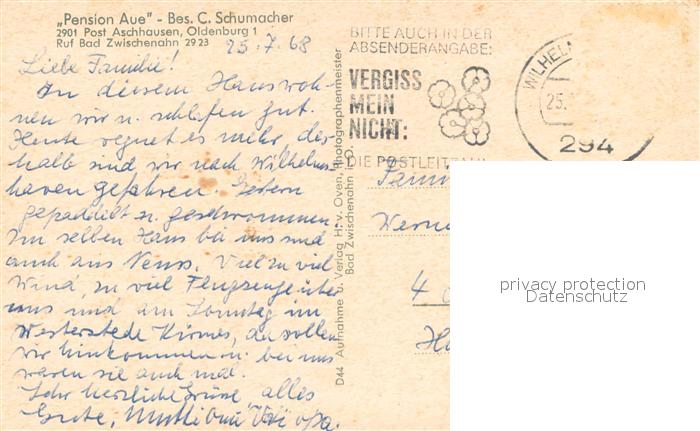 „Pension Aue" - Bes. C. Schumacher
2901 Post Aschhausen, Oldenburg 1
Ruf Bad Zwischenahn 29 23
25.7.68
Liebe Familie!
In diesem Haus woh-
nen wir u. schlafen gut.
Heute regnet es mehr, des-
halb sind wir nach Wilhelms-
haven gefahren. Gestern
gepaddelt u. geschwommen.
Im selben Haus bei uns sind
auch aus Neuss. Viel zu viel
Wind, zu viel Flugzeuge über
uns und am Sonntag in
Westerstede Kirmes, da sollen
wir hinkommen u. bei uns
waren sie auch mal.
Sehr herzliche Grüsse, alles
Gute, Mutti Omi Vati Opa.
D44 Aufnahme u. Verlag H. v. Oven, Photographenmeister
Bad Zwischenahn i. O.
BITTE AUCH IN DER
ABSENDERANGABE:
VERGISS
MEIN
NICHT:
DIE POSTLEITZAHL
WILHELM
25.
294
Fami
Werne
4
privacy protection
Datenschutz